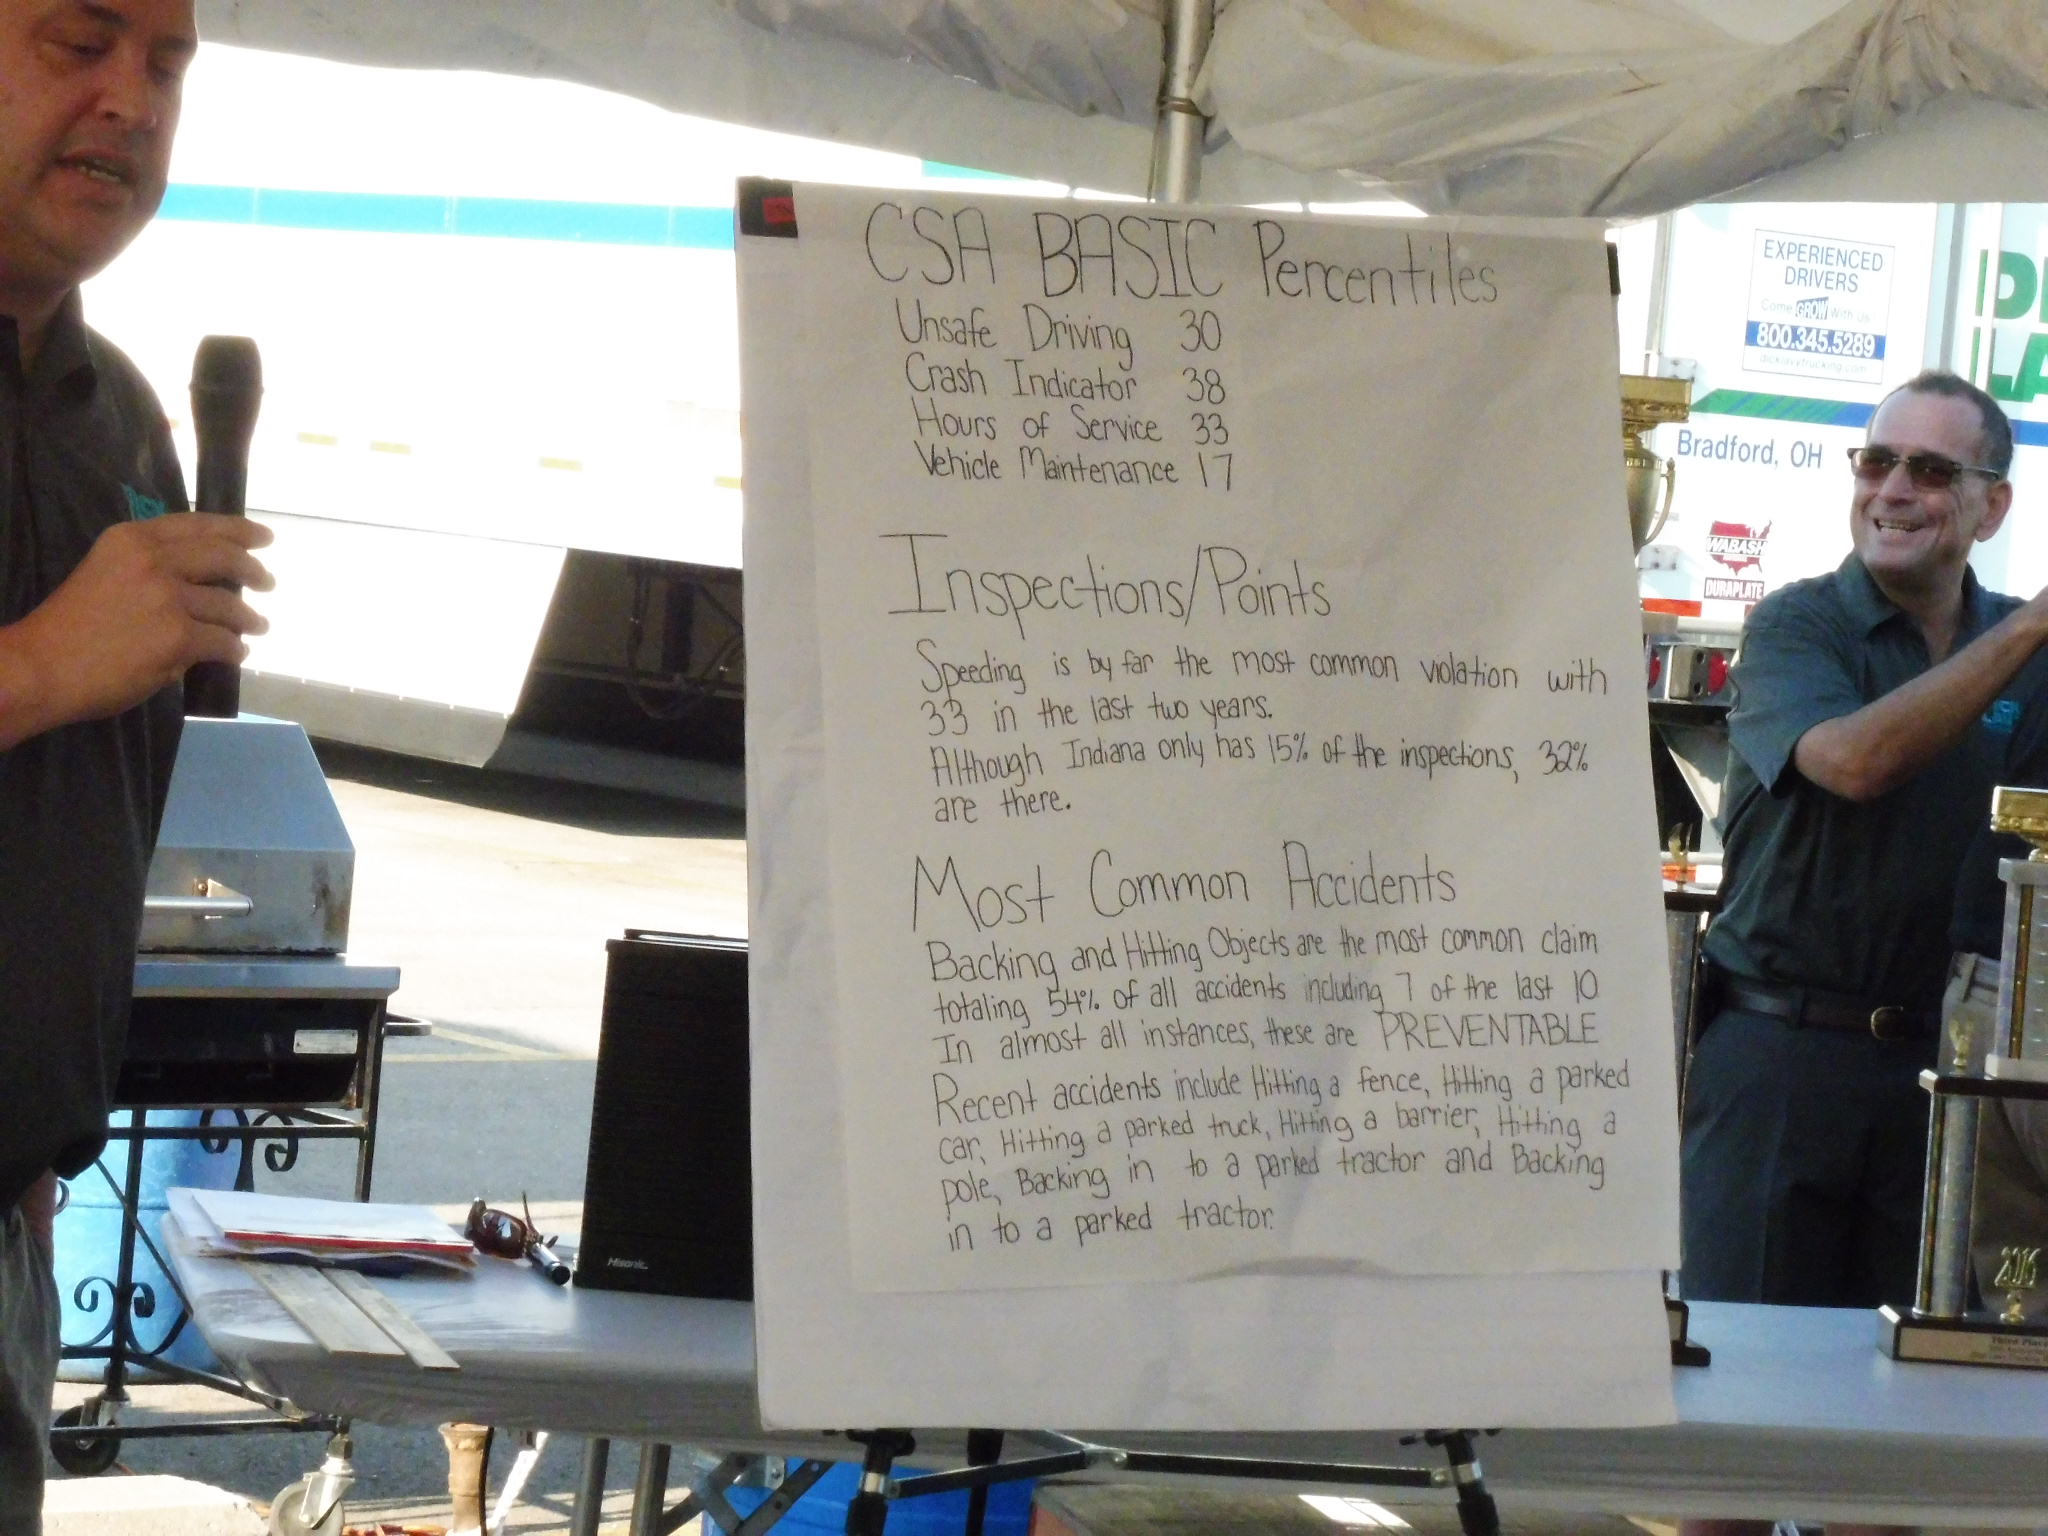 CSA BASIC Percentiles
Unsafe Driving 30
Crash Indicator 38
Hours of Service 33
Vehicle Maintenance 17
Inspections/Points
Speeding is by far the most common violation with
33 in the last two years.
Although Indiana only has 15% of the inspections, 32%
are there.
Most Common Accidents
Backing and Hitting Objects are the most common claim
totaling 54% of all accidents including 7 of the last 10
In almost all instances, these are PREVENTABLE
Recent accidents include Hitting a fence, Hitting a parked
car, Hitting a parked truck, Hitting a barrier, Hitting a
pole, Backing in to a parked tractor and Backing
in to a parked tractor.
EXPERIENCED
DRIVERS
Come GROW With Us
800.345.5289
dicklavytrucking.com
Bradford, OH
WABASH
DURAPLATE
2016
Third Place